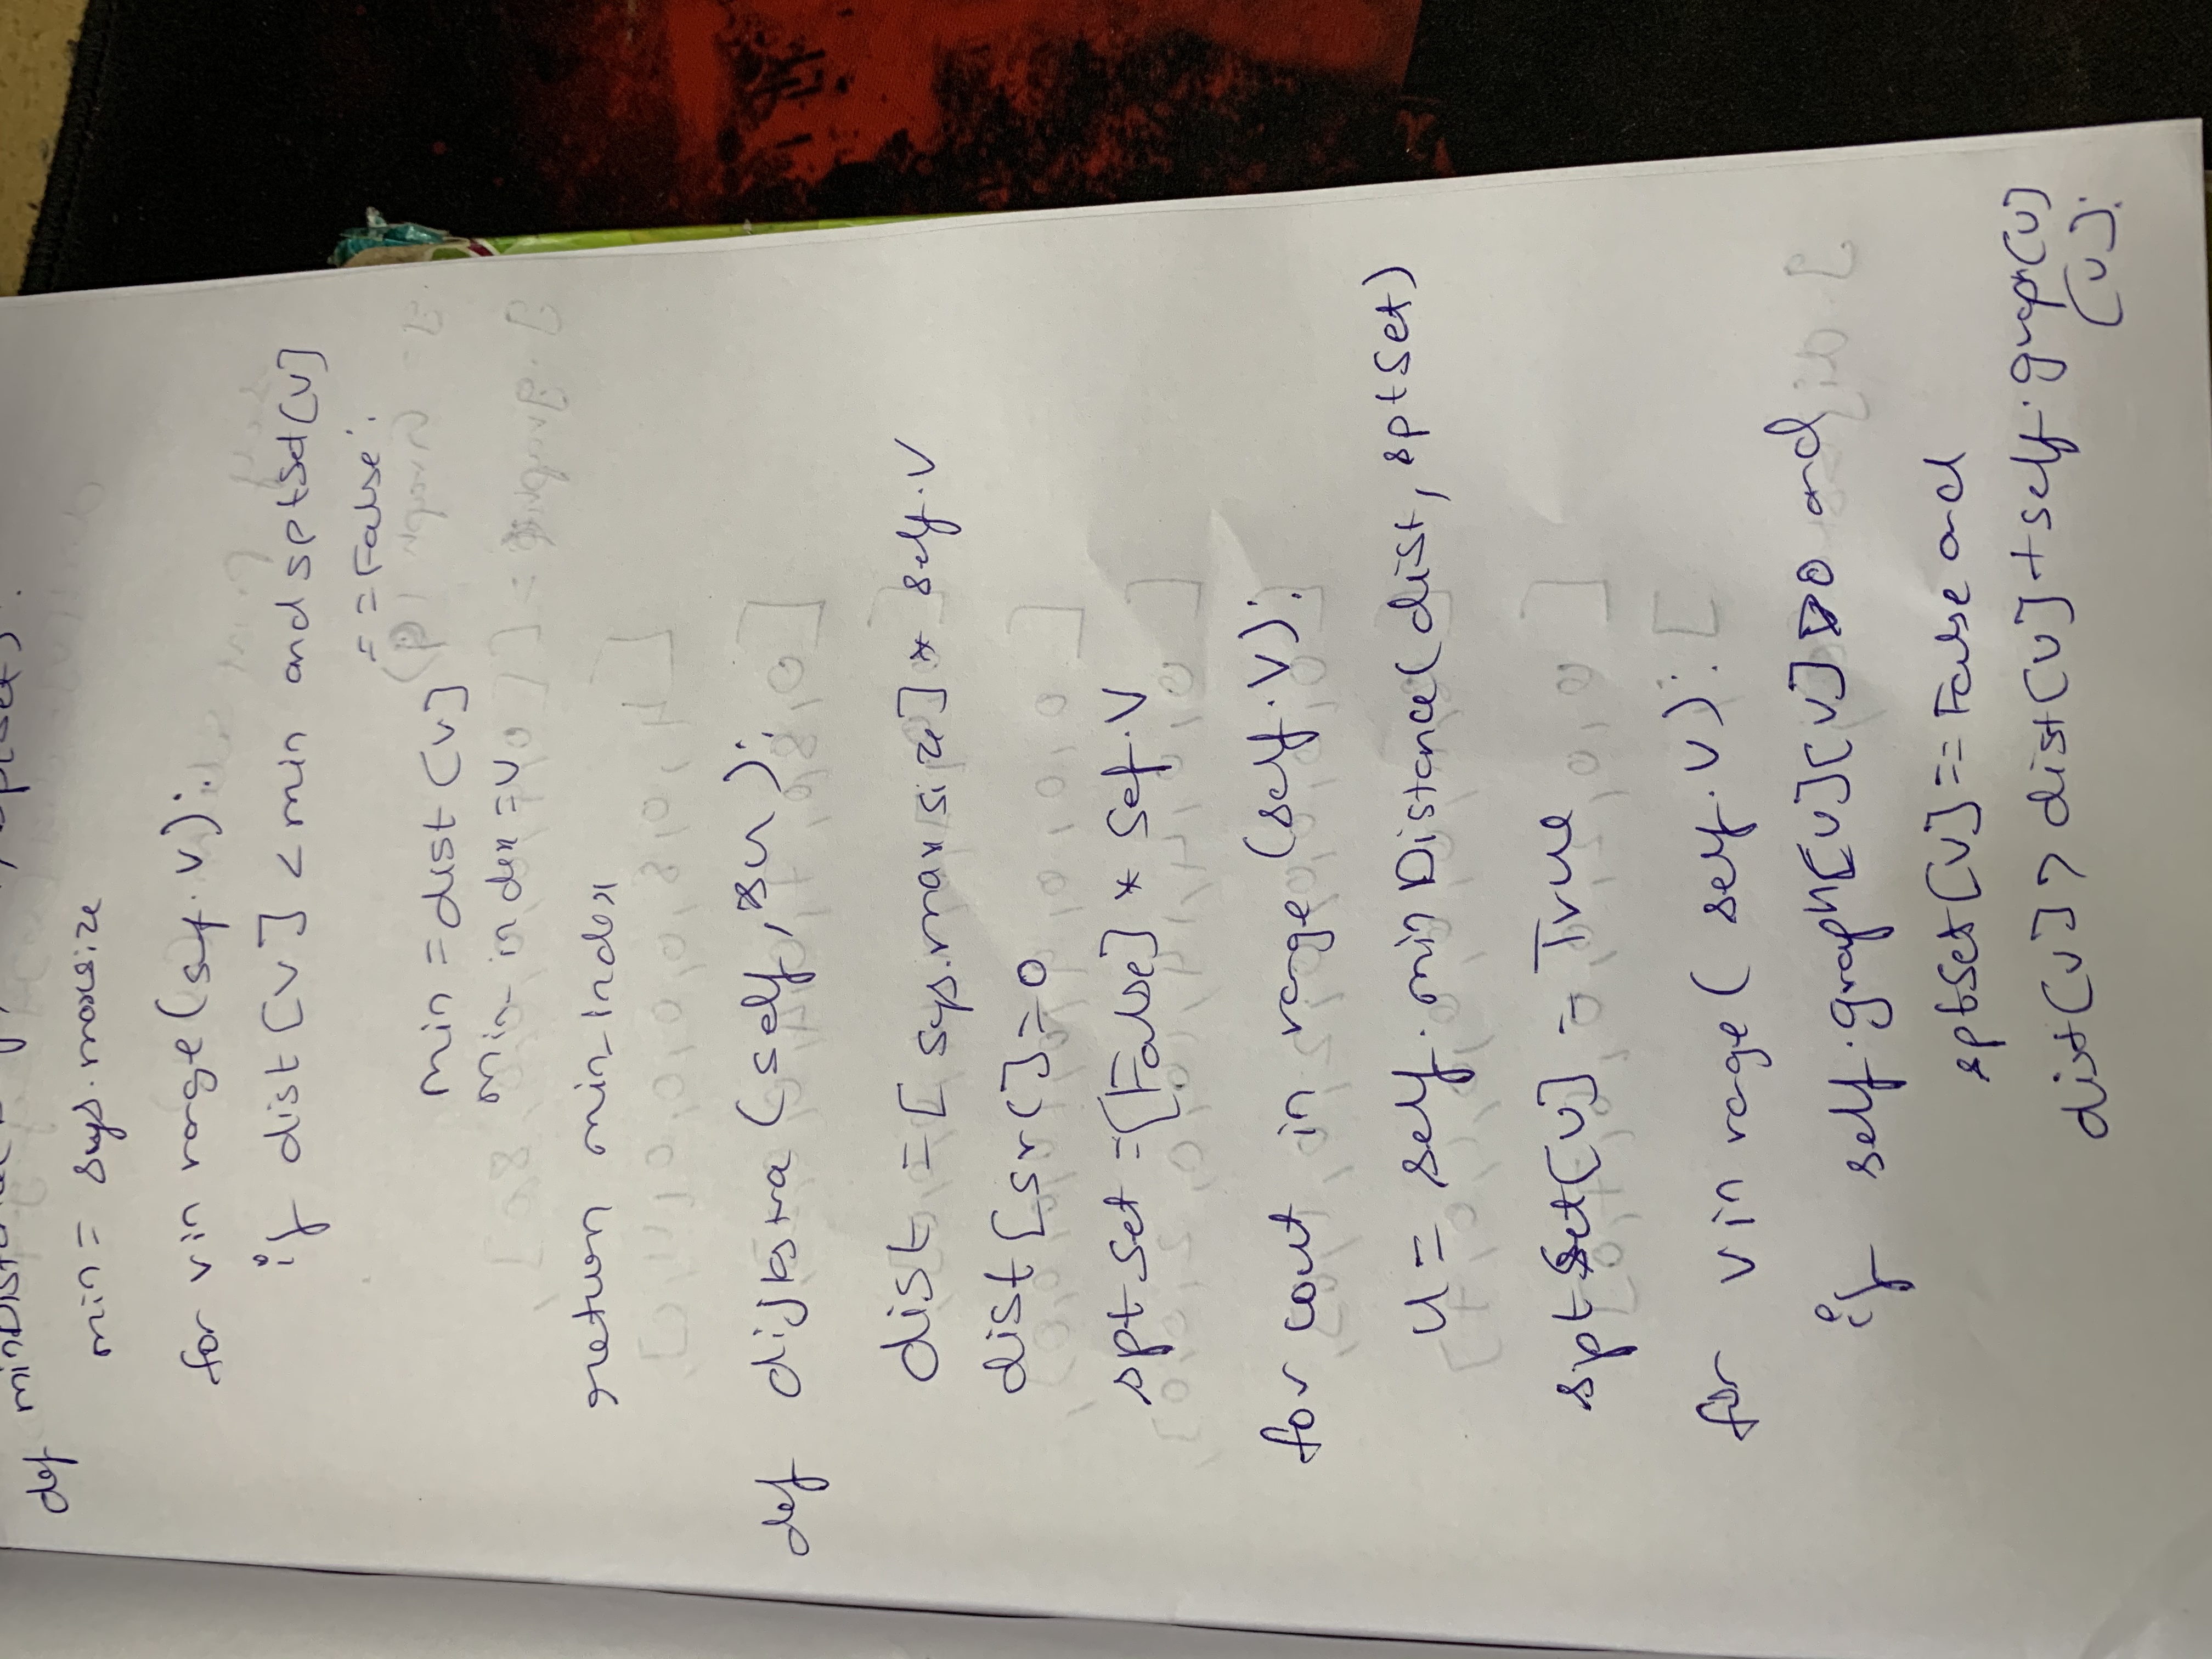 def minDistance( sptSet):
min = sys.maxsize
for v in range(sef.V):
if dist[v] < min and sptSet[v]
==False:
min = dist[v]
min_index = v
return min_index
def dijkstra (self, src):
dist = [sys.maxsize] * self.V
dist[src]=0
sptSet =[False] * Sef.V
for cout in range (self.V):
u = self.minDistance(dist, sptSet)
sptSet[u] = True
for v in rage( self.V):
if self.graph[u][v] >0 and
sptSet[v]==False and
dist[v] > dist[u] + self.graph[u]
[v]: